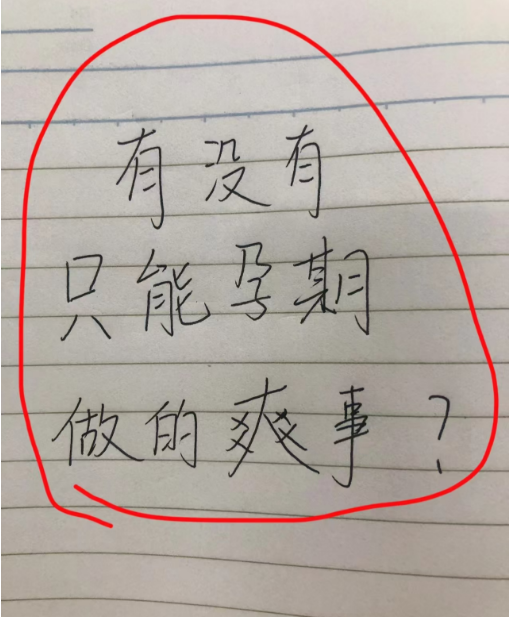 有没有
只能孕期
做的爽事？